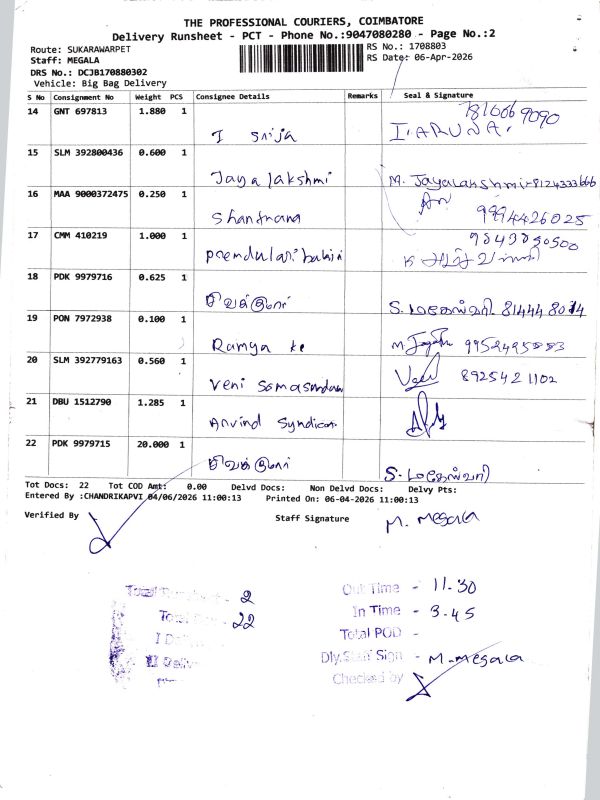 THE PROFESSIONAL COURIERS, COIMBATORE
Delivery Runsheet - PCT - Phone No.:9047080280 - Page No.:2
Route: SUKARAWARPET
RS No.: 1708803
Staff: MEGALA
RS Date: 06-Apr-2026
DRS No.: DCJB170880302
Vehicle: Big Bag Delivery
S No Consignment No Weight PCS Consignee Details Remarks Seal & Signature
14 GNT 697813 1.880 1
I Srija I. ARUNA.
15 SLM 392800436 0.600 1
Jayalakshmi M. Jayalakshmi-8124333666
16 MAA 9000372475 0.250 1
Shantnana 9994426025
17 CMM 410219 1.000 1
18 PDK 9979716 0.625 1
S. மகேஸ்வரி
19 PON 7972938 0.100 1
Ramya ke
20 SLM 392779163 0.560 1
Veni Somasundaram 8925421102
21 DBU 1512790 1.285 1
Arvind Syndicate
22 PDK 9979715 20.000 1
S. மகேஸ்வரி
Tot Docs: 22 Tot COD Amt: 0.00 Delvd Docs: Non Delvd Docs: Delvy Pts:
Entered By :CHANDRIKAPVI 04/06/2026 11:00:13 Printed On: 06-04-2026 11:00:13
Verified By Staff Signature M. Megala
Out Time - 11.30
2
In Time - 3.45
22
Total POD -
Dly.Staff Sign - M.Megala
Checked by